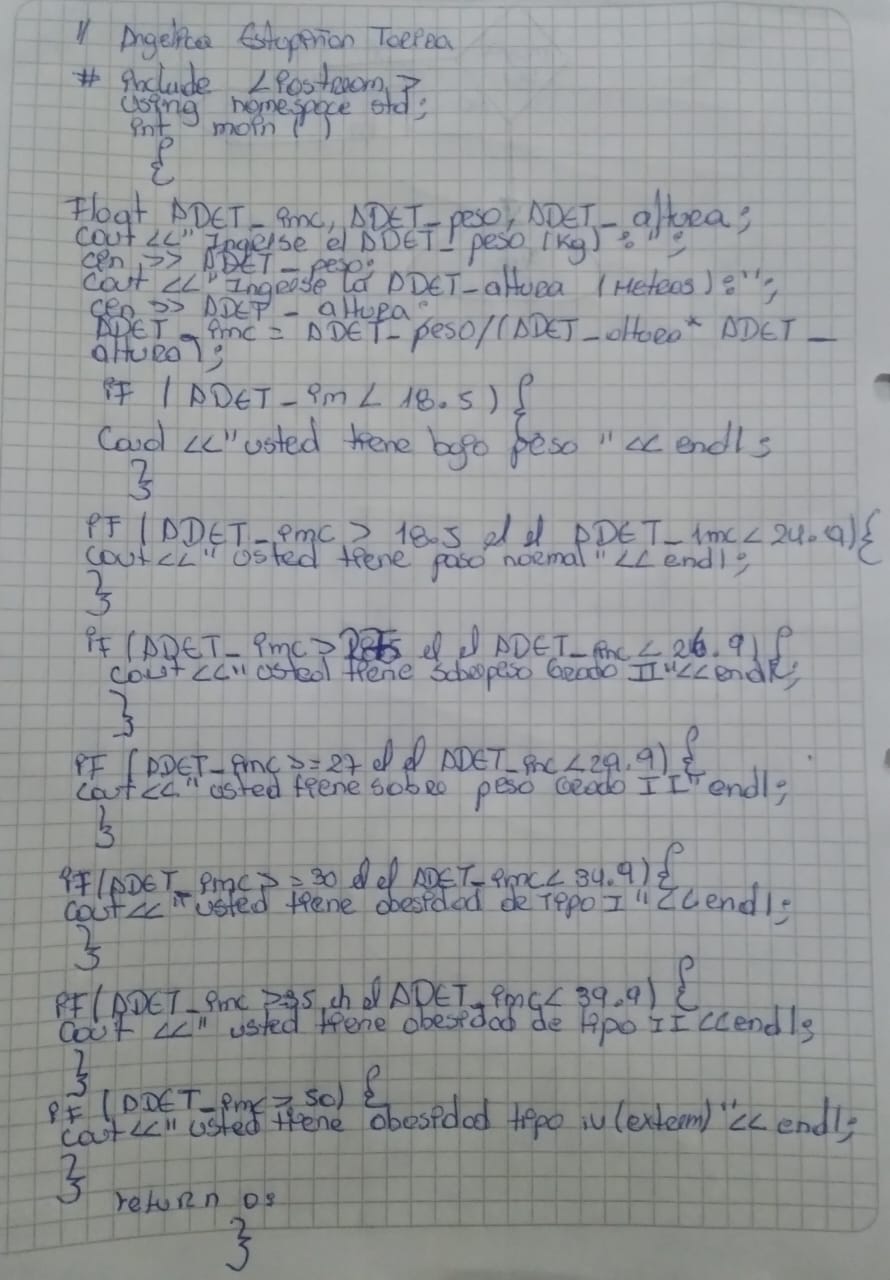 // Angelica Estupiñan Torrea
# include <iostream>
using namespace std;
int main ( )
{
Float ADET_imc, ADET_peso, ADET_altura;
cout <<" Ingerse el ADET_peso (Kg) : ";
cin >> ADET_peso;
cout <<" Ingerse la ADET_altura (Meteos) : ";
cin >> ADET_altura;
ADET_imc = ADET_peso/(ADET_altura* ADET_
altura);
iF (ADET_im < 18.5) {
Coud <<" usted tiene bajo peso " << endl;
}
iF (ADET_imc > 18.5 && ADET_imc < 24.9){
cout <<" usted tiene paso normal" << endl;
}
iF (ADET_imc > && ADET_inc < 26.9) {
cout <<" usted tiene sobepeso Geado II "<< endl;
}
iF (ADET_imc >= 27 && ADET_inc < 29.9) {
cout <<" usted tiene sobeo peso Geado II" endl;
}
iF (ADET_imc >= 30 && ADET_imc < 34.9) {
cout <<" usted tiene obesidad de Tipo I " << endl;
}
iF (ADET_imc >=35 && ADET_imc < 39.9) {
cout <<" usted tiene obesidad de tipo II << endl;
}
iF (ADET_imc > 50) {
cout <<" usted tiene obesidad tipo iv (exteem) "<< endl;
}
return 0;
}